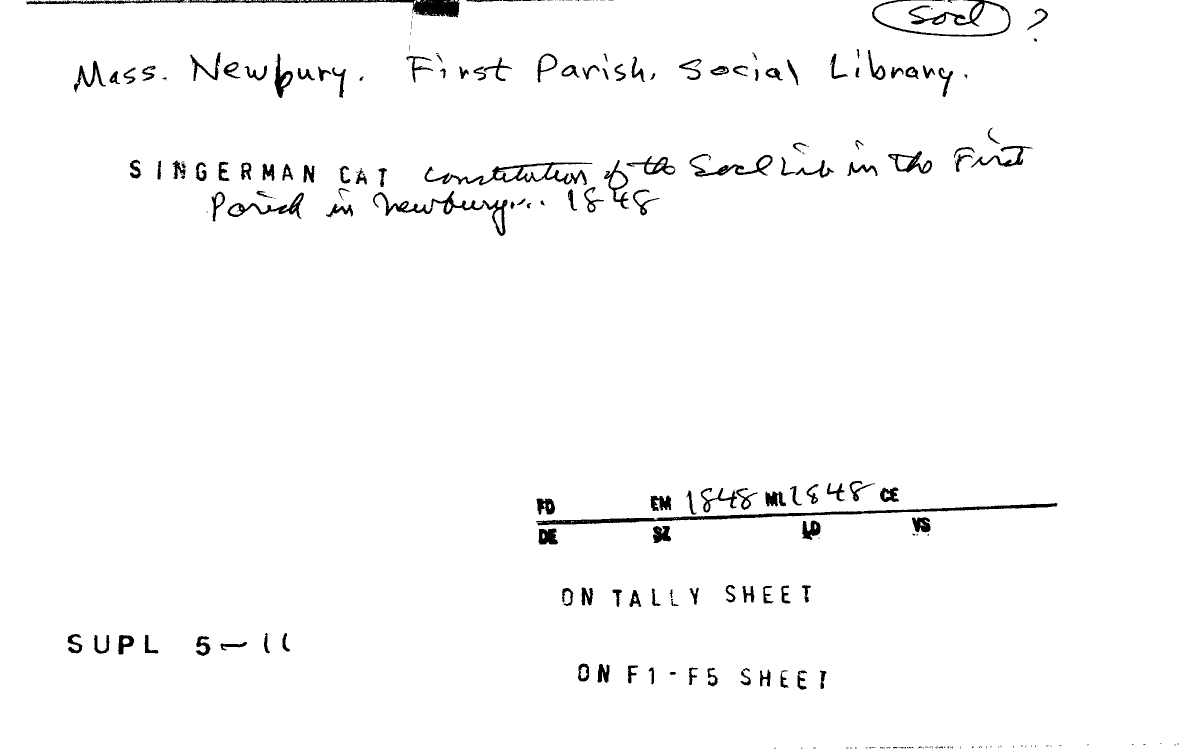 Socl ?
Mass. Newbury. First Parish. Social Library.
SINGERMAN CAT Constitution of the Socl Lib in the First
Parish in Newbury... 1848
FD EM 1848 ML 1848 CE
DE SZ LD VS
ON TALLY SHEET
SUPL 5-11
ON F1-F5 SHEET